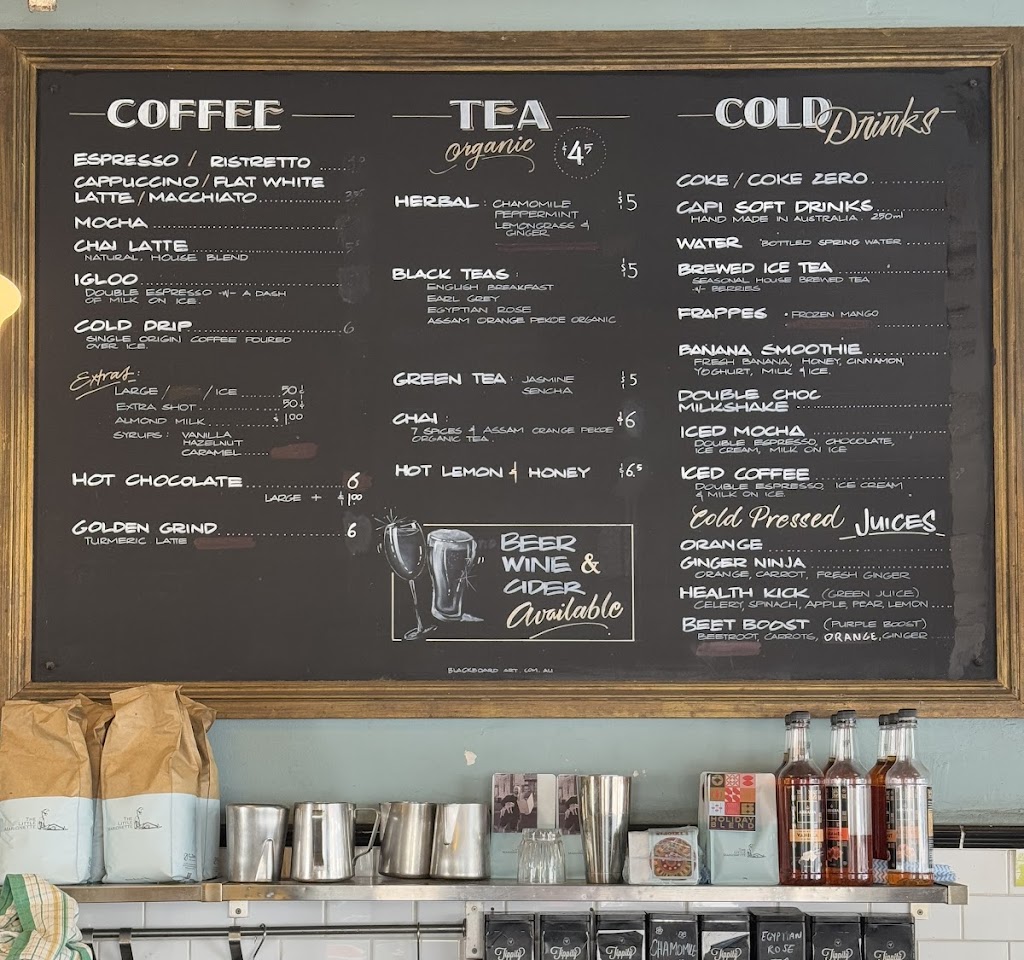 COFFEE
ESPRESSO / RISTRETTO
CAPPUCCINO / FLAT WHITE
LATTE / MACCHIATO
MOCHA
CHAI LATTE
NATURAL, HOUSE BLEND
IGLOO
DOUBLE ESPRESSO -W- A DASH
OF MILK ON ICE.
COLD DRIP 6
SINGLE ORIGIN COFFEE POURED
OVER ICE.
Extras:
LARGE / / ICE 50¢
EXTRA SHOT 50¢
ALMOND MILK $1.00
SYRUPS: VANILLA
HAZELNUT
CARAMEL
HOT CHOCOLATE 6
LARGE + $1.00
GOLDEN GRIND 6
TURMERIC LATTE
TEA
organic $4.5
HERBAL: CHAMOMILE $5
PEPPERMINT
LEMONGRASS &
GINGER
BLACK TEAS: $5
ENGLISH BREAKFAST
EARL GREY
EGYPTIAN ROSE
ASSAM ORANGE PEKOE ORGANIC
GREEN TEA: JASMINE $5
SENCHA
CHAI: $6
7 SPICES & ASSAM ORANGE PEKOE
ORGANIC TEA.
HOT LEMON & HONEY $6.5
BEER
WINE &
CIDER
Available
BLACKBOARD ART.COM.AU
COLD Drinks
COKE / COKE ZERO
CAPI SOFT DRINKS
HAND MADE IN AUSTRALIA. 250ml
WATER BOTTLED SPRING WATER
BREWED ICE TEA
SEASONAL HOUSE BREWED TEA
-W- BERRIES
FRAPPES • FROZEN MANGO
BANANA SMOOTHIE
FRESH BANANA, HONEY, CINNAMON,
YOGHURT, MILK & ICE.
DOUBLE CHOC
MILKSHAKE
ICED MOCHA
DOUBLE ESPRESSO, CHOCOLATE,
ICE CREAM, MILK ON ICE
ICED COFFEE
DOUBLE ESPRESSO, ICE CREAM
& MILK ON ICE.
Cold Pressed JUICES
ORANGE
GINGER NINJA
ORANGE, CARROT, FRESH GINGER
HEALTH KICK (GREEN JUICE)
CELERY, SPINACH, APPLE, PEAR, LEMON
BEET BOOST (PURPLE BOOST)
BEETROOT, CARROTS, ORANGE, GINGER
THE LITTLE MARIONETTE
HOLIDAY
BLEND
Tippity
Tippity
Tippity
CHAMOMILE
Tippity
EGYPTIAN
ROSE
Tippity
Tippity